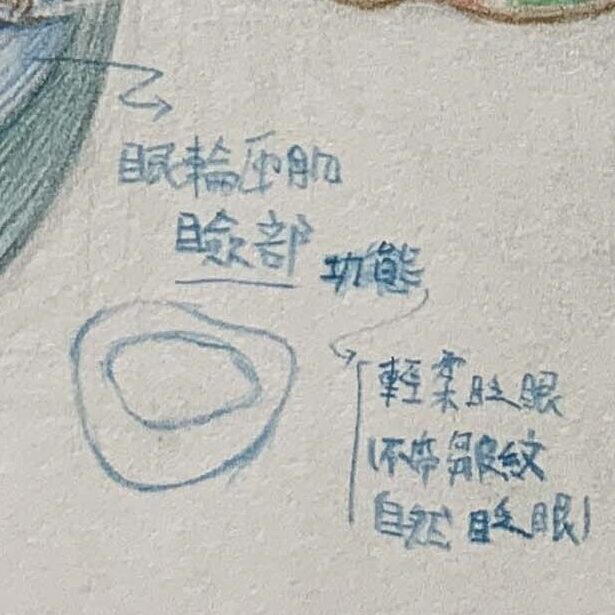 眼輪匝肌
瞼部 功能
輕柔眨眼
(不帶皺紋
自然眨眼)